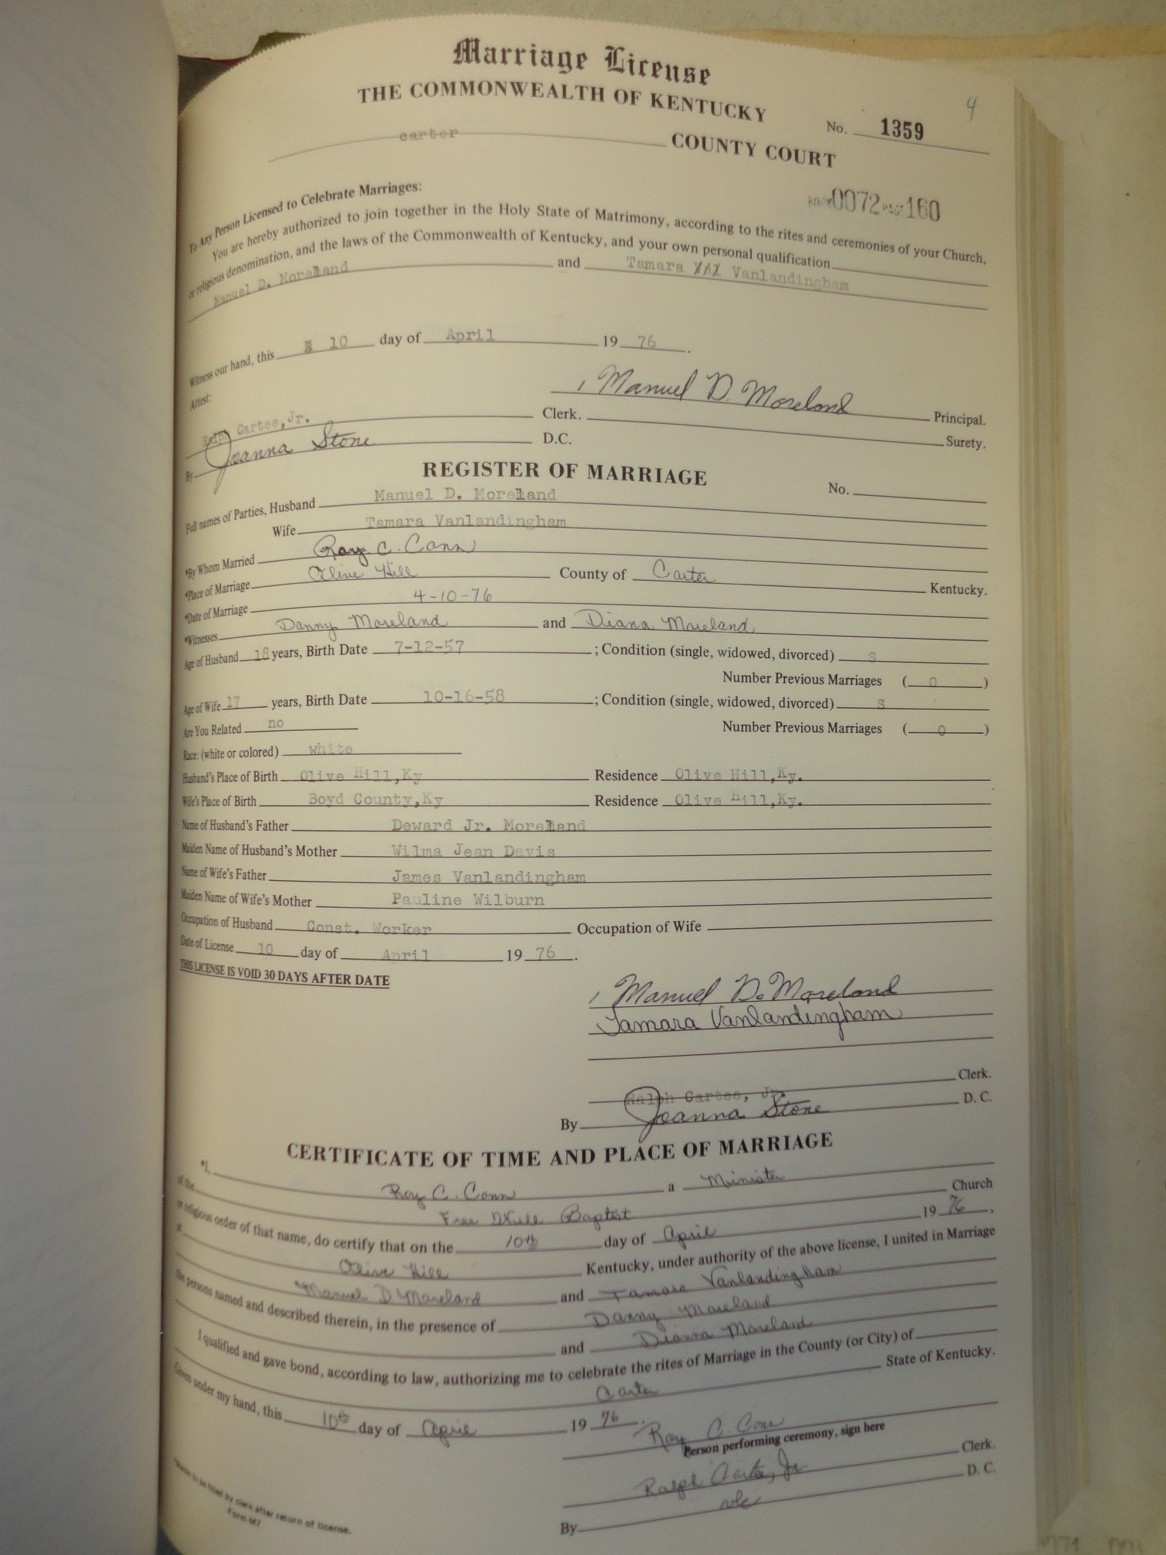 Marriage License
THE COMMONWEALTH OF KENTUCKY
4
No. 1359
carter COUNTY COURT
0072 160
To Any Person Licensed to Celebrate Marriages:
You are hereby authorized to join together in the Holy State of Matrimony, according to the rites and ceremonies of your Church,
or religious denomination, and the laws of the Commonwealth of Kentucky, and your own personal qualification
Manuel D. Moreland and Tamara Vanlandingham
Witness our hand, this 10 day of April 19 76.
Attest:
Manuel D. Moreland Principal.
Ralph Cartee, Jr. Clerk.
Surety.
By Joanna Stone D.C.
REGISTER OF MARRIAGE
No.
Full names of Parties, Husband Manuel D. Moreland
Wife Tamara Vanlandingham
*By Whom Married Roy C. Conn
*Place of Marriage Olive Hill County of Carter Kentucky.
*Date of Marriage 4-10-76
*Witnesses Danny Moreland and Diana Moreland
Age of Husband 18 years, Birth Date 7-12-57; Condition (single, widowed, divorced) s
Number Previous Marriages (0)
Age of Wife 17 years, Birth Date 10-16-58; Condition (single, widowed, divorced) s
Are You Related no Number Previous Marriages (0)
Race: (white or colored) white
Husband's Place of Birth Olive Hill,Ky Residence Olive Hill,Ky.
Wife's Place of Birth Boyd County,Ky Residence Olive Hill,Ky.
Name of Husband's Father Deward Jr. Moreland
Maiden Name of Husband's Mother Wilma Jean Davis
Name of Wife's Father James Vanlandingham
Maiden Name of Wife's Mother Pauline Wilburn
Occupation of Husband Const. Worker Occupation of Wife
Date of License 10 day of April 19 76.
THIS LICENSE IS VOID 30 DAYS AFTER DATE
Manuel D. Moreland
Tamara Vanlandingham
Ralph Cartee, Jr. Clerk.
By Joanna Stone D. C.
CERTIFICATE OF TIME AND PLACE OF MARRIAGE
*I, Roy C. Conn a Minister
of the Free Will Baptist Church
or religious order of that name, do certify that on the 10th day of April 19 76.
at Olive Hill Kentucky, under authority of the above license, I united in Marriage
Manuel D Moreland and Tamara Vanlandingham
the persons named and described therein, in the presence of Danny Moreland
and Dianna Moreland
I qualified and gave bond, according to law, authorizing me to celebrate the rites of Marriage in the County (or City) of
Carter State of Kentucky.
Given under my hand, this 10th day of April 19 76.
Roy C. Conn
Person performing ceremony, sign here
Ralph Cartee, Jr. Clerk.
By D. C.
*Blanks to be filled by clerk after return of license.